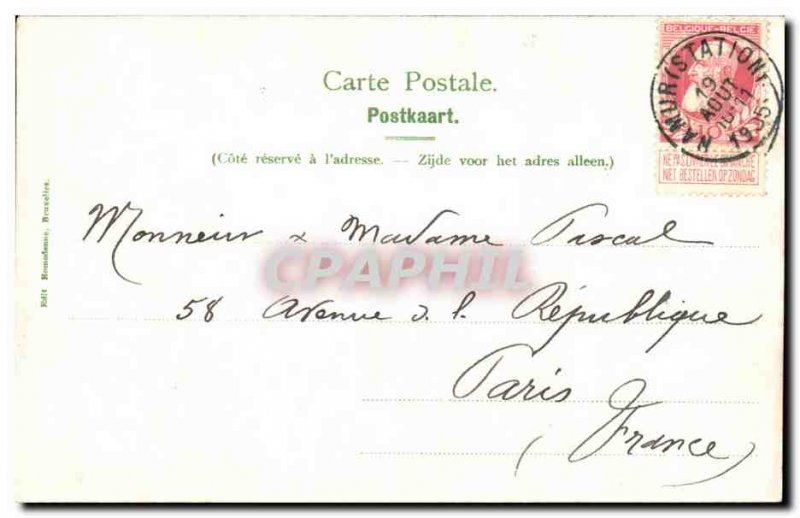 BELGIQUE-BELGIE
NAMUR (STATION)
19
AOUT
1905
10
NE PAS LIVRER LE DIMANCHE
NIET BESTELLEN OP ZONDAG
Carte Postale.
Postkaart.
(Côté réservé à l'adresse. — Zijde voor het adres alleen.)
Monsieur & Madame Pascal
58 Avenue d. l. République
Paris
(France)
CPAPHIL
Bruxelles.